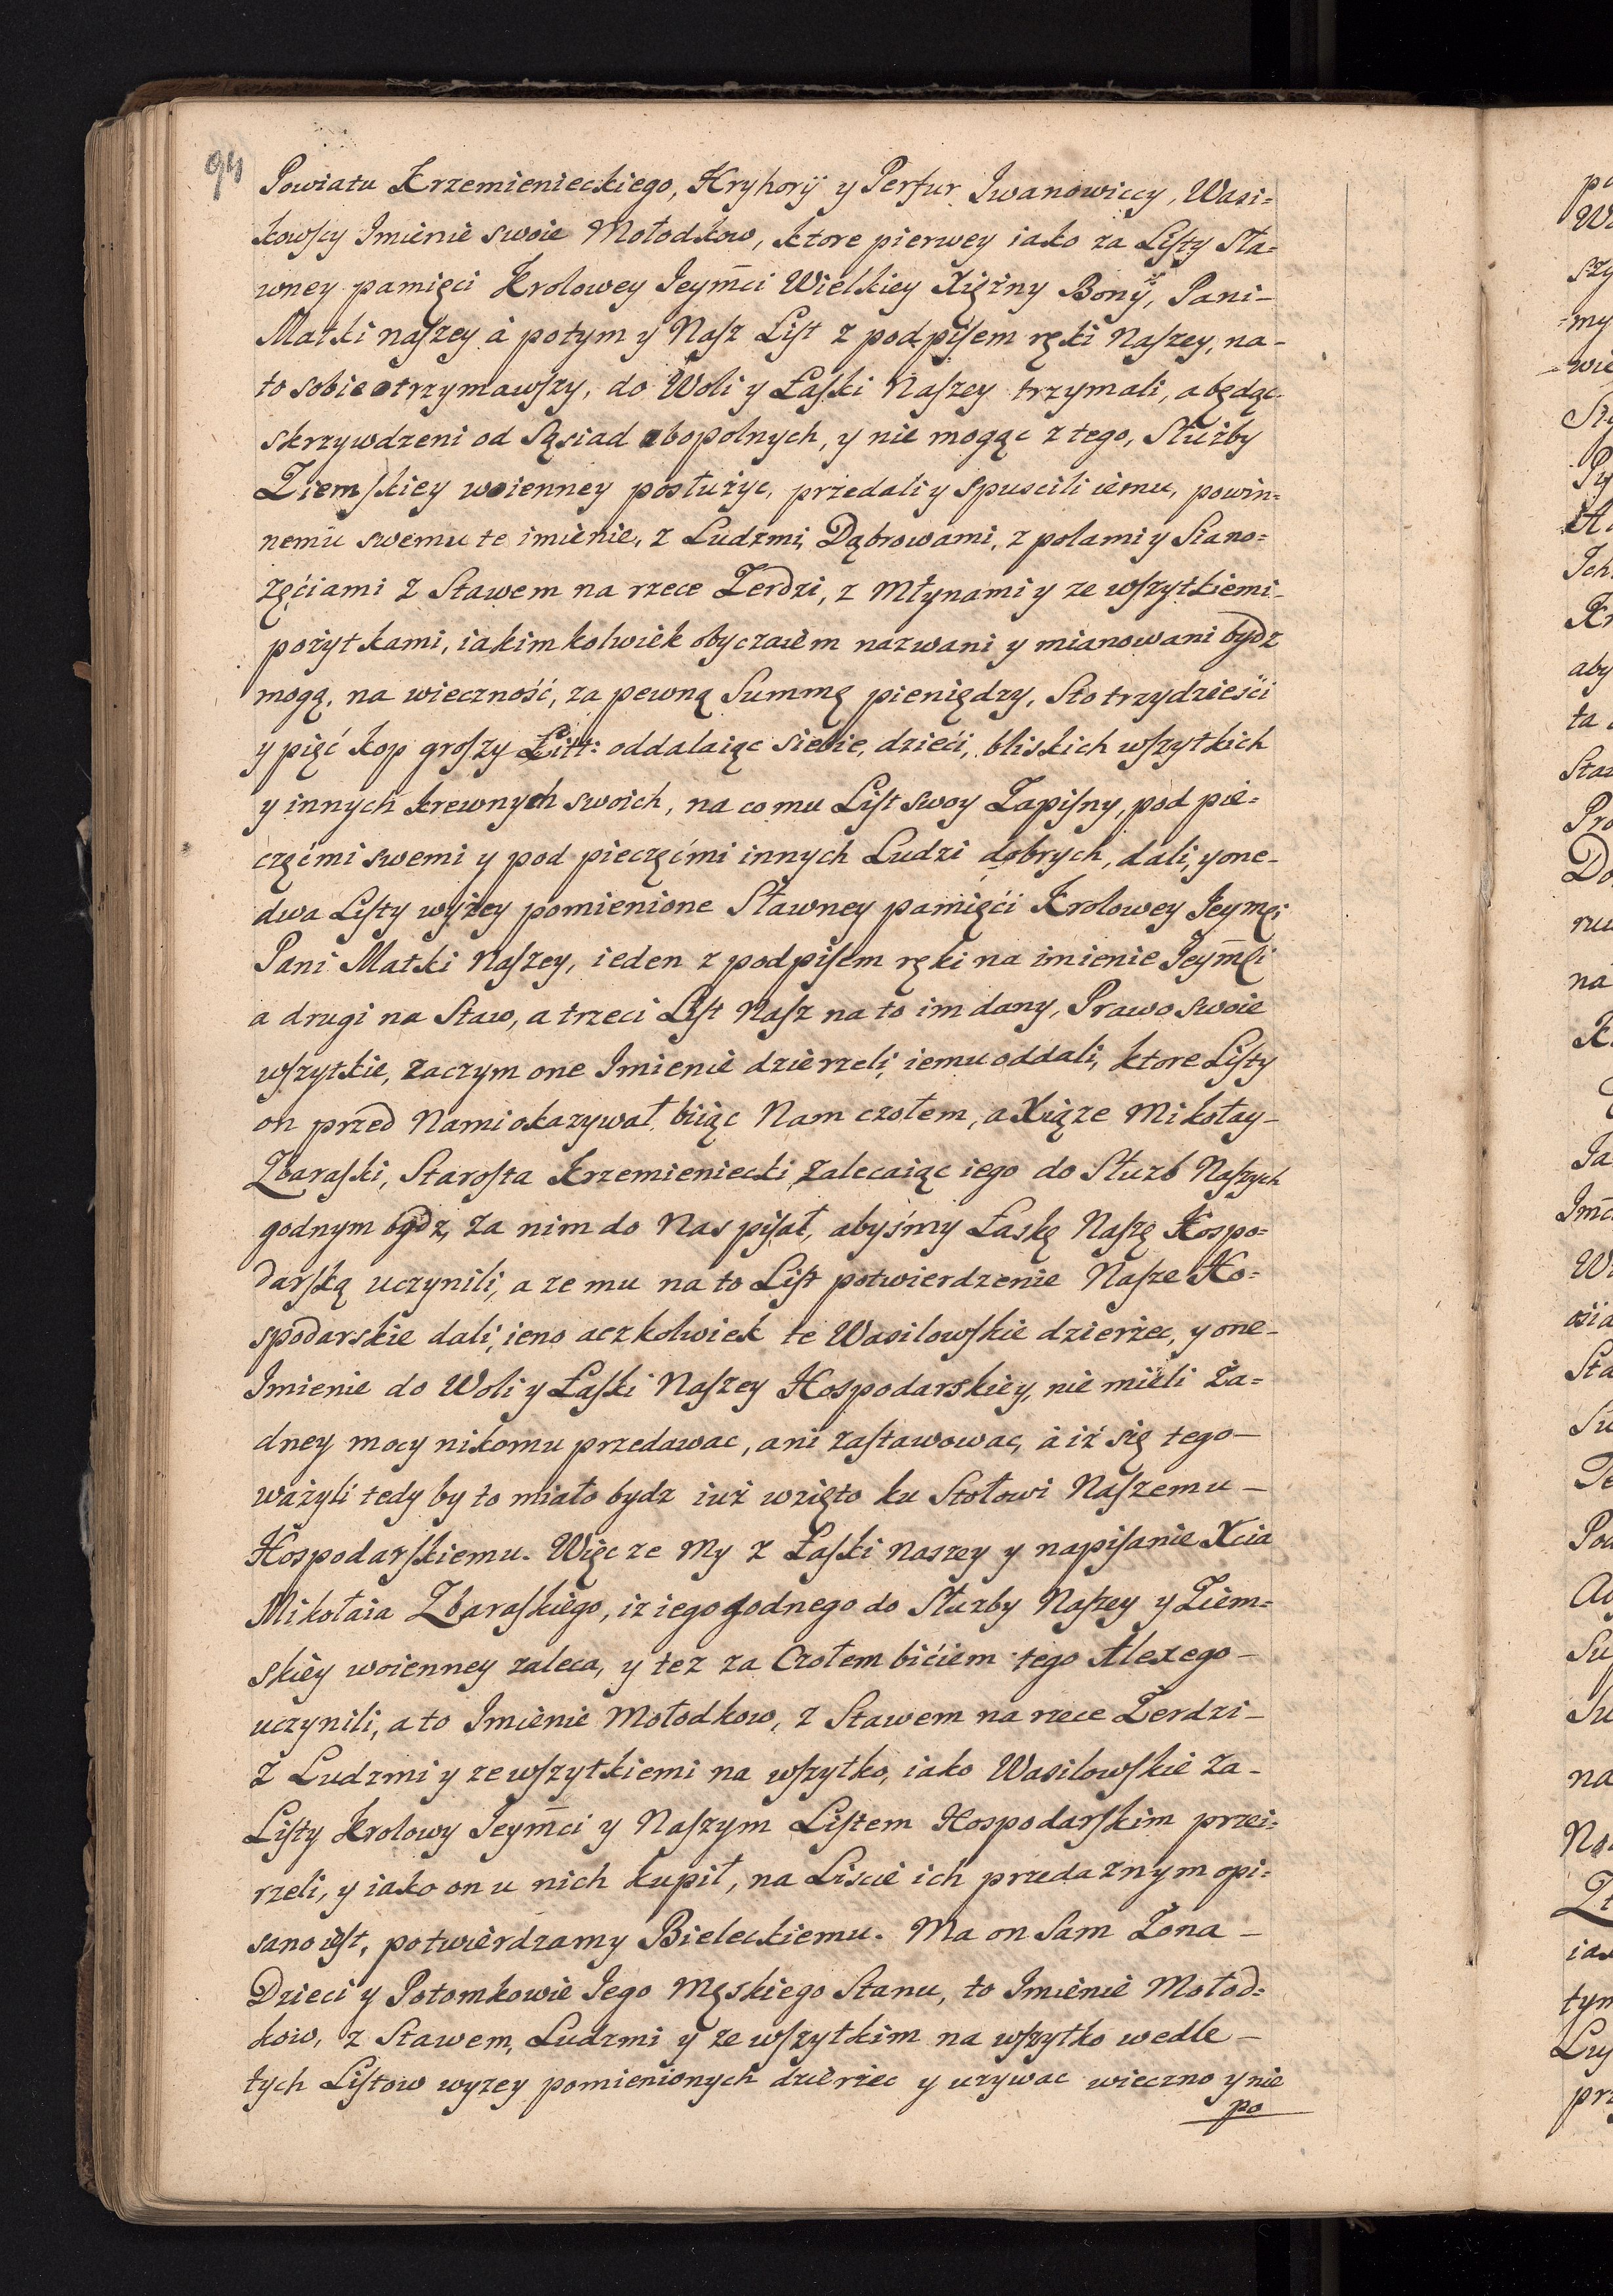 94
Powiatu Krzemienieckiego, Hryhorÿ y Perfur Iwanowiccy, Wasi=
kowscy Imienie swoie Mołodkow, ktore pierwey iako za Listy sła=
wney pamięci Krolowey Jeym̄ci Wielkiey Xiężny Bonÿ, Pani-
Matki naszey à potym y Nasz List z podpisem ręki Naszey, na-
to sobie otrzymawszy, do Woli y Łaski Naszey trzymali, a będąc
skrzywdzeni od Sąsiad obopolnych, y nie mogąc z tego, Służby
Ziemskiey woienney posłużyc, przedali y spuscili iemu, powin=
nemu swemu te imienie, z Ludzmi, Dąbrowami, z polami y Siano=
zęćiami z Stawem na rzece Zerdzi, z Młynami y ze wszytkiemi-
pożytkami, iakimkolwiek obyczaiem nazwani y mianowani bydz
mogą, na wieczność, za pewną Summę pieniędzy, Sto trzydzieści
y pięć kop groszy Litt: oddalaiąc siebie, dzieći, bliskich wszytkich
y innych krewnych swoich, na co mu List swoy Zapisny, pod pie=
częćmi swemi y pod pieczęćmi innych Ludzi dobrych, dali, y one-
dwa Listy wyżey pomienione Sławney pamięći Krolowey Jeymći
Pani Matki Naszey, ieden z podpisem ręki na imienie Jeym̄ći
a drugi na Staw, a trzeci List Nasz na to im dany, Prawo swoie
wszytkie, zaczym one Imienie dzierzeli, iemu oddali, ktore Listy
on przed Nami okazywał, biiąc Nam czołem, a Xiąze Mikołay-
Zbaraski, Starosta Krzemieniecki, zalecaiąc iego do Służb Naszych
godnym bydz, za nim do Nas pisał, abyśmy Łaskę Naszę Hospo=
darską uczynili, a ze mu na to List potwierdzenie Nasze Ho=
spodarskie dali, ieno aczkolwiek te Wasilowskie dzierżec, y one-
Imienie do Woli y Łaski Naszey Hospodarskiey, nie mieli Ża=
dney mocy nikomu przedawac, ani zastawowac, à iż się tego-
ważyli tedy by to miało bydz iuż wzięto ku Stołowi Naszemu-
Hospodarskiemu. Więc ze My z Łaski naszey y napisanie Xcia
Mikołaia Zbaraskiego, iz iego godnego do Służby Naszey y Ziem=
skiey woienney zaleca, y tez za Czołem bićiem tego Alexego-
uczynili, a to Imienie Mołodkow, z Stawem na rzece Zerdzi-
z Ludzmi y ze wszytkiemi na wszytko, iako Wasilowskie za-
Listy Krolowy Jeym̄ci y Naszym Listem Hospodarskim przei=
rzeli, y iako on u nich kupił, na Liscie ich przedaznym opi=
sano iest, potwierdzamy Bieleckiemu. Ma on Sam Zona-
Dzieci y Potomkowie Jego Męskiego Stanu, to Imienie Mołod=
kow, z Stawem, Ludzmi y ze wszytkim na wszytko wedle-
tych Listow wyzey pomienionych dzierżec y uzywac wieczno y nie
po